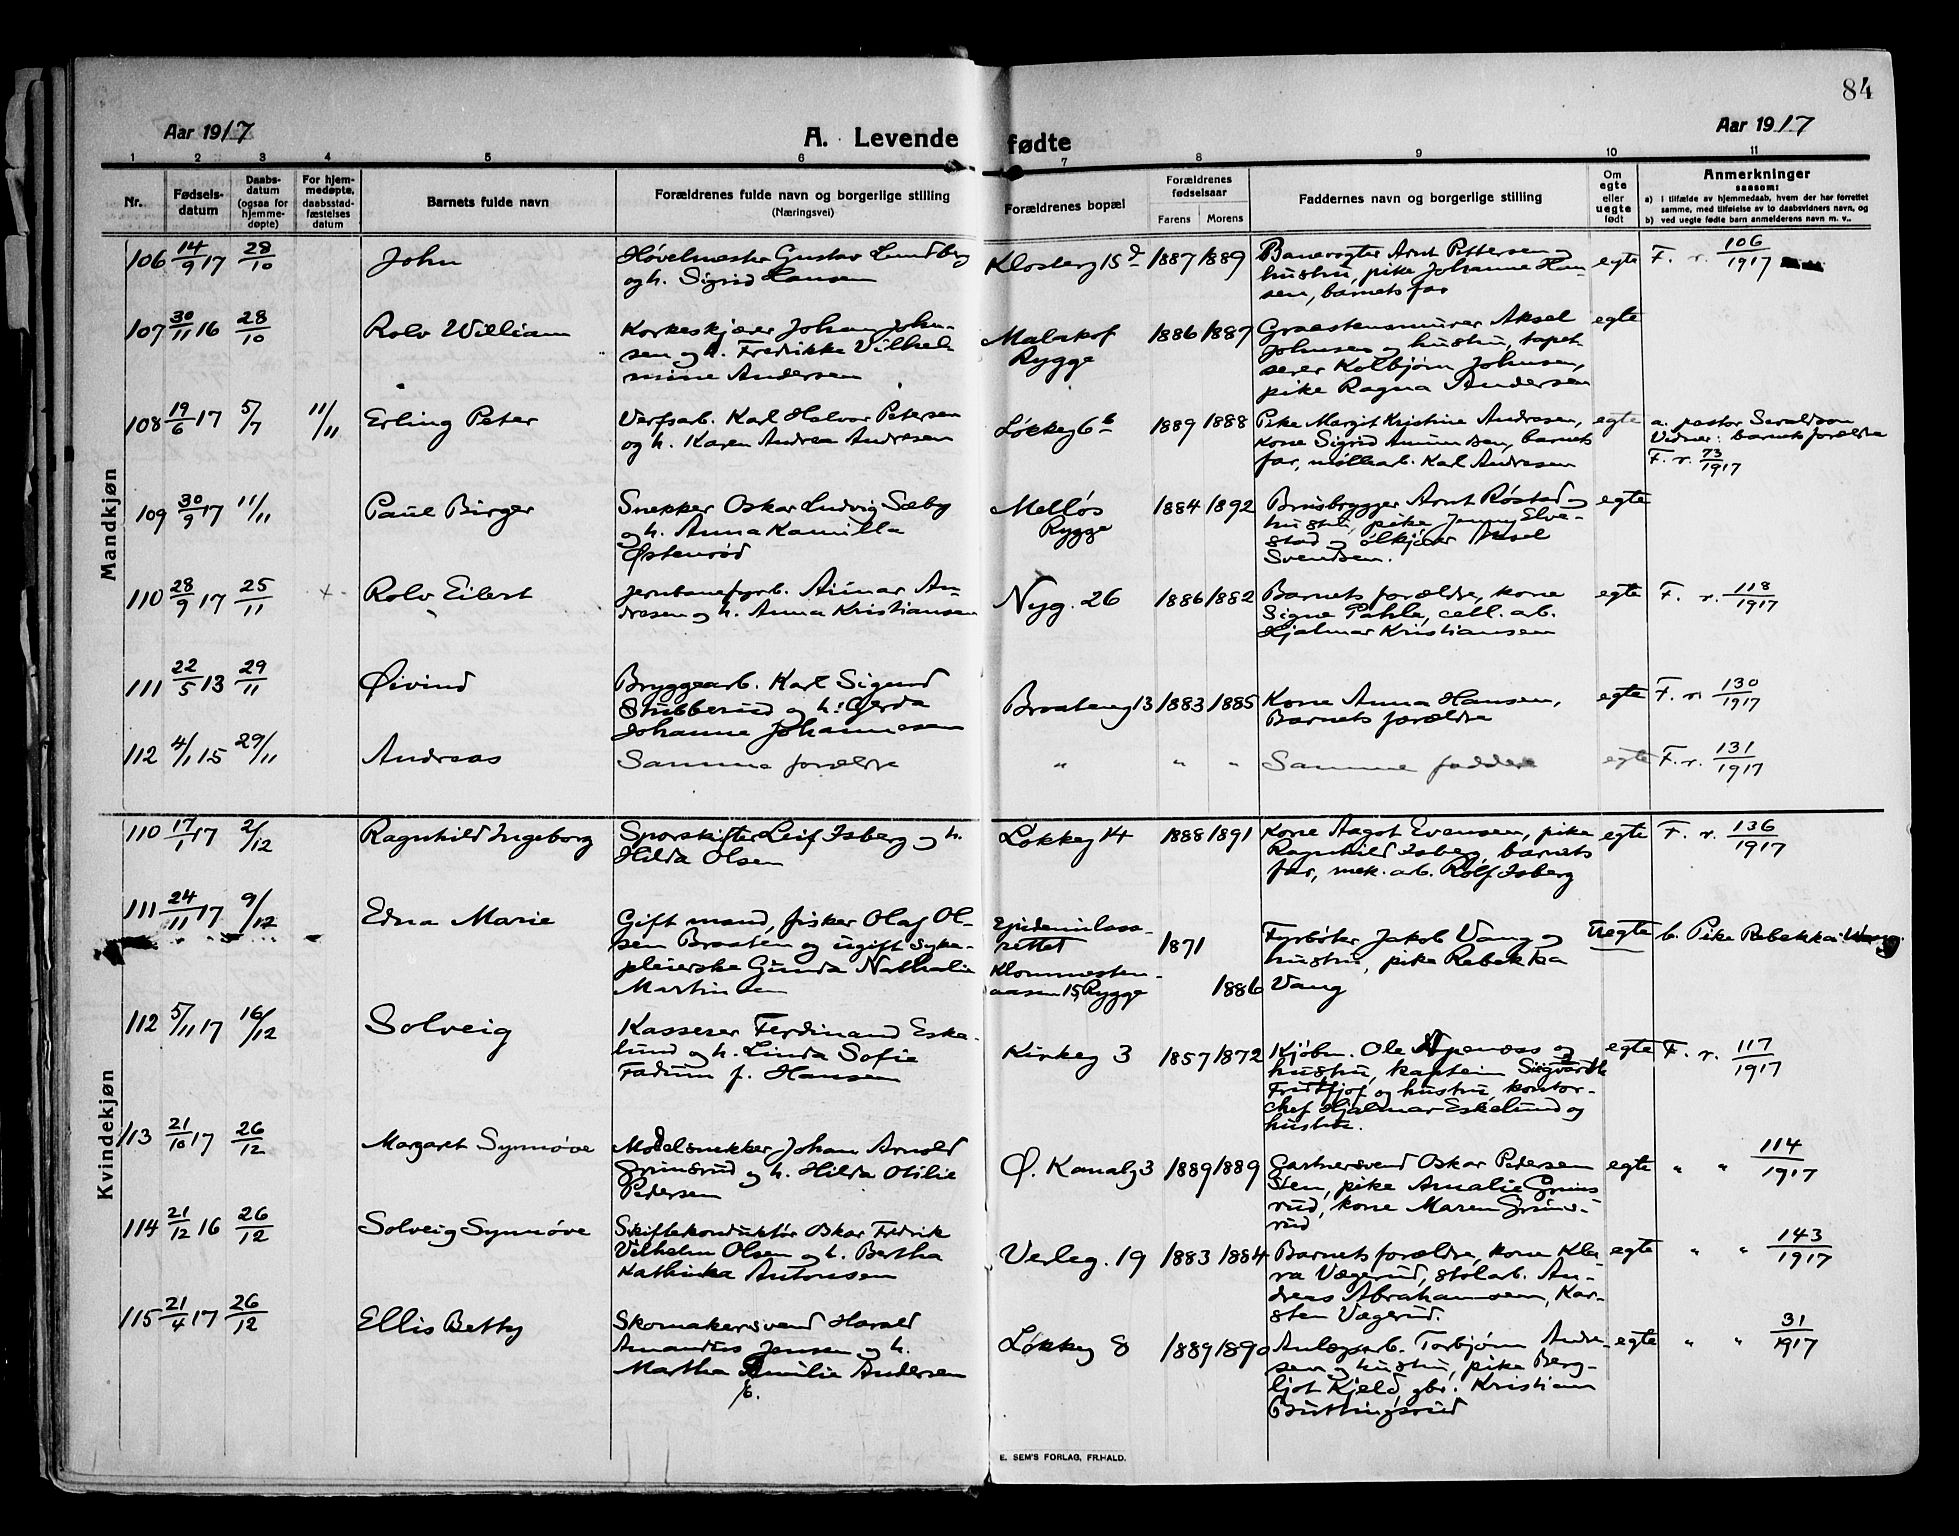 84
Aar 1917
A. Levende fødte
Aar 1917
1 2 3 4 5 6 7 8 9 10 11
Nr.
Fødsels-
datum
Daabs-
datum
(ogsaa for
hjemme-
døpte)
For hjem-
medøpte,
daabsstad-
fæstelses
datum
Barnets fulde navn
Forældrenes fulde navn og borgerlige stilling
(Næringsvei)
Forældrenes bopæl
Forældrenes
fødselsaar
Farens Morens
Faddernes navn og borgerlige stilling
Om
egte
eller
uegte
født
Anmerkninger
saasom:
a) i tilfælde av hjemmedaab, hvem der har forrettet
samme, med tilføielse av to daabsvidners navn, og
b) ved uegte fødte barn anmelderens navn m. v..
Mandkjøn
106 14/9 17 28/10 John
Høvelmester Gustav Lundberg
og h. Sigrid Hansen
Klosterg 15 d 1887 1889
Banevogter Arnt Pettersen og
hustru, pike Johanne Han-
sen, barnets far
egte F. r. 106/1917
107 30/11 16 28/10 Rolv William
Korkeskjærer Johan John-
sen og h. Fredrikke Vilhel-
mine Andersen
Malakof
Rygge
1886 1887
Graastensmurer Aksel
Johnsen og hustru, tapet-
serer Kolbjørn Johnsen,
pike Ragna Andersen
egte
108 19/6 17 5/7 11/11 Erling Peter
Verfsarb. Karl Halvor Petersen
og h. Karen Andrea Andresen
Løkkeg 6 b 1889 1888
Pike Margit Kristine Andresen,
kone Sigrid Amundsen, barnets
far, møllearb. Karl Andresen
egte
a. pastor Sevaldson
Vidner: barnets forældre
F. r. 73/1917
109 30/9 17 11/11 Paul Birger
Snekker Oskar Ludvig Sæby
og h. Anna Kamilla
Østenrød
Melløs
Rygge
1884 1892
Brusbrygger Arnt Røstad og
hustru, pike Jenny Elve-
stad og ølkjører Aksel
Svendsen.
egte
110 28/9 17 25/11 Rolv Eilert
Jernbanefyrb. Aimar An-
dresen og h. Anna Kristiansen
Nyg. 26 1886 1882
Barnets forældre, kone
Signe Pahle, cell. ab.
Hjalmar Kristiansen
egte F. r. 118/1917
111 22/5 13 29/11 Øivind
Bryggearb. Karl Sigurd
Stubberud og h. Gerda
Johanne Johannesen
Braateng 13 1883 1885
Kone Anna Hansen,
Barnets forældre
egte F. r. 130/1917
112 4/1 15 29/11 Andreas
Samme forældre
" " " Samme faddere egte F. r. 131/1917
Kvindekjøn
110 17/1 17 2/12 Ragnhild Ingeborg
Sporskifter Leif Isberg og h.
Hilda Olsen
Løkkeg 14 1888 1891
Kone Aagot Evensen, pike
Ragnhild Isberg, barnets
far, mek. arb. Rolf Isberg
egte F. r. 136/1917
111 24/11 17 9/12 Edna Marie
Gift mand, fisker Olaf Ol-
sen Braaten og ugift syke-
pleierske Gunda Nathalie
Martinsen
Epidemilasa-
rettet
Klommesten-
aasen 15, Rygge
1871
1886
Fyrbøter Jakob Vang og
hustru, pike Rebekka
Vang
Uegte b. Pike Rebekka Vang.
112 5/11 17 16/12 Solveig
Kasserer Ferdinand Eske-
lund og h. Linda Sofie
Fadum f. Hansen
Kirkeg 3 1857 1872
Kjøbm. Ole Apenæss og
hustru, kaptein Sigvardt
Fridtjof og hustru, kontor-
chef Hjalmar Eskelund og
hustru.
egte F. r. 117/1917
113 21/10 17 26/12 Margaret Synnøve
Modelsnekker Johan Arnold
Grimsrud og h. Hilda Otilie
Pedersen
Ø. Kanalg 3 1889 1889
Gartnersvend Oskar Pedersen
Sten, pike Amalie Grims-
rud, kone Maren Grims-
rud
egte " " 114/1917
114 21/12 16 26/12 Solveig Synnøve
Skiftekonduktør Oskar Fredrik
Vilhelm Olsen og h. Bertha
Kathinka Antonsen
Verleg. 19 1883 1884
Barnets forældre, kone Kla-
ra Vægerud, stolarb. An-
dreas Abrahamsen, Kar-
sten Vægerud.
egte " " 143/1917
115 21/4 17 26/12 Ellis Betty
Skomakersvend Harald
Amandus Jensen og h.
Martha Emilie Andersen
Løkkeg 8 1889 1890
Anlægsarb. Torbjørn Andre-
sen og hustru, pike Berg-
ljot Kjeld, gbr. Kristian
Buttingsrud
egte " " 31/1917
E. SEM'S FORLAG, FR.HALD.